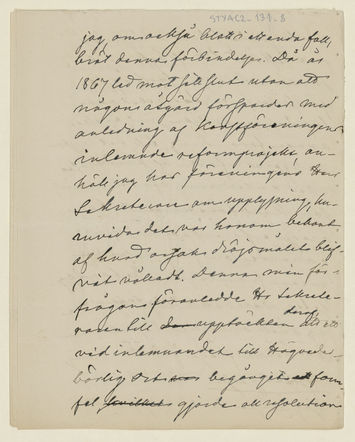 STYAC2-131-8
jag om också blott i ett enda fall,
bröt denna förbindelse. Då år
1867 led mot sitt slut utan att
någon åtgärd försports med
anledning af Konstföreningen
inlemnade reformprojekt, an-
höll jag hos föreningens Herr
Sekreterare om upplysning, hu-
ruvida det var honom bekant
af hvad orsak dröjsmålet blif-
vit vålladt. Denna min för-
frågan föranledde Hr Sekrete-
raren till upptäckten deraf, att
vid inlemnandet till Högvede-
börlig ort begånget form
fel, hvilket gjorde att resolution